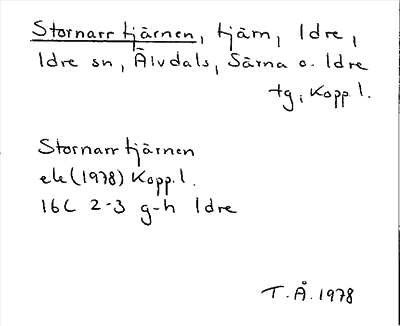 Stornarrtjärnen, tjärn, Idre,
Idre sn, Älvdals, Särna o. Idre
tg, Kopp l.
Stornarrtjärnen
ek (1978) Kopp. l.
16C 2-3 g-h Idre
T.Å. 1978